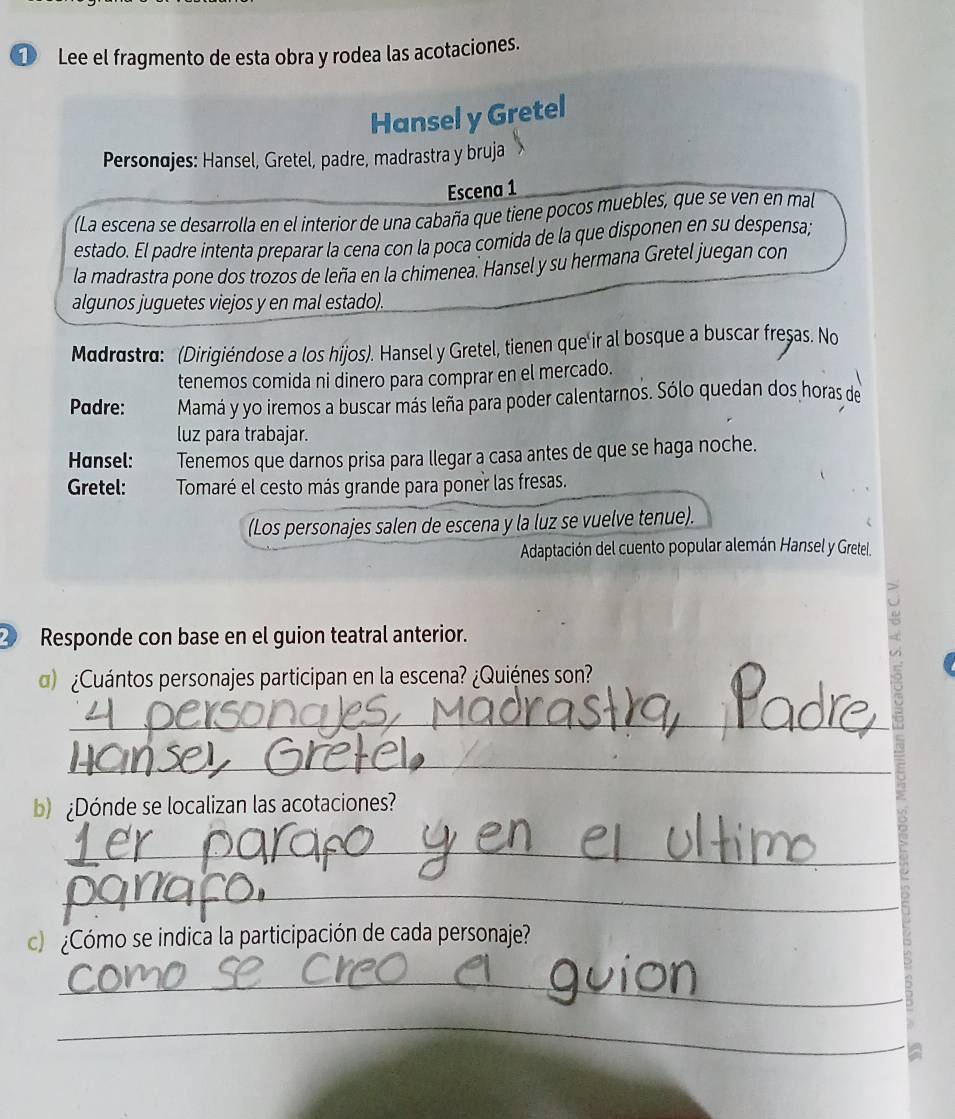 1 Lee el fragmento de esta obra y rodea las acotaciones.
Hansel y Gretel
Personajes: Hansel, Gretel, padre, madrastra y bruja
Escena 1
(La escena se desarrolla en el interior de una cabaña que tiene pocos muebles, que se ven en mal
estado. El padre intenta preparar la cena con la poca comida de la que disponen en su despensa;
la madrastra pone dos trozos de leña en la chimenea. Hansel y su hermana Gretel juegan con
algunos juguetes viejos y en mal estado).
Madrastra: (Dirigiéndose a los hijos). Hansel y Gretel, tienen que ir al bosque a buscar fresas. No
tenemos comida ni dinero para comprar en el mercado.
Padre: Mamá y yo iremos a buscar más leña para poder calentarnos. Sólo quedan dos horas de
luz para trabajar.
Hansel: Tenemos que darnos prisa para llegar a casa antes de que se haga noche.
Gretel: Tomaré el cesto más grande para poner las fresas.
(Los personajes salen de escena y la luz se vuelve tenue).
Adaptación del cuento popular alemán Hansel y Gretel.
2 Responde con base en el guion teatral anterior.
a) ¿Cuántos personajes participan en la escena? ¿Quiénes son?
4 personajes, Madrastra, Padre,
Hansel, Gretel.
b) ¿Dónde se localizan las acotaciones?
1er parafo y en el ultimo
parrafo.
c) ¿Cómo se indica la participación de cada personaje?
como se creo el guion
© Todos los derechos reservados, Macmillan Educación, S. A. de C. V.